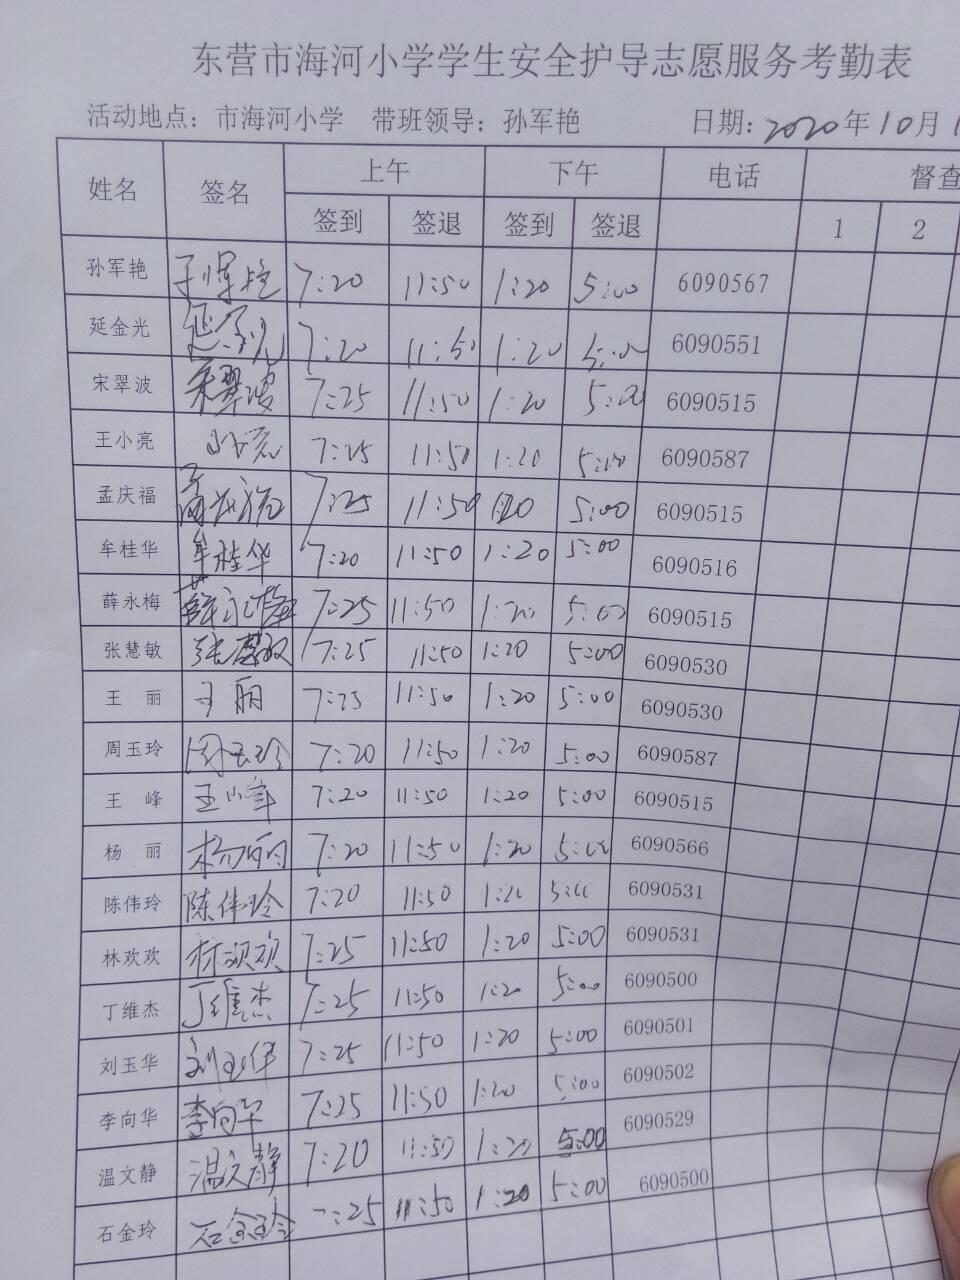 东营市海河小学学生安全护导志愿服务考勤表
活动地点：市海河小学 带班领导：孙军艳 日期：2020年10月1
姓名 签名 上午 下午 电话 督查
签到 签退 签到 签退 1 2
孙军艳 孙军艳 7:20 11:50 1:20 5:00 6090567
延金光 延金光 7:20 11:50 1:20 5:00 6090551
宋翠波 宋翠波 7:25 11:50 1:20 5:00 6090515
王小亮 王小亮 7:25 11:50 1:20 5:00 6090587
孟庆福 孟庆福 7:25 11:50 1:20 5:00 6090515
牟桂华 牟桂华 7:20 11:50 1:20 5:00 6090516
薛永梅 薛永梅 7:25 11:50 1:20 5:00 6090515
张慧敏 张慧敏 7:25 11:50 1:20 5:00 6090530
王 丽 王丽 7:25 11:50 1:20 5:00 6090530
周玉玲 周玉玲 7:20 11:50 1:20 5:00 6090587
王 峰 王峰 7:20 11:50 1:20 5:00 6090515
杨 丽 杨丽 7:20 11:50 1:20 5:00 6090566
陈伟玲 陈伟玲 7:20 11:50 1:20 5:00 6090531
林欢欢 林欢欢 7:25 11:50 1:20 5:00 6090531
丁维杰 丁维杰 7:25 11:50 1:20 5:00 6090500
刘玉华 刘玉华 7:25 11:50 1:20 5:00 6090501
李向华 李向华 7:25 11:50 1:20 5:00 6090502
温文静 温文静 7:20 11:50 1:20 5:00 6090529
石金玲 石金玲 7:25 11:50 1:20 5:00 6090500